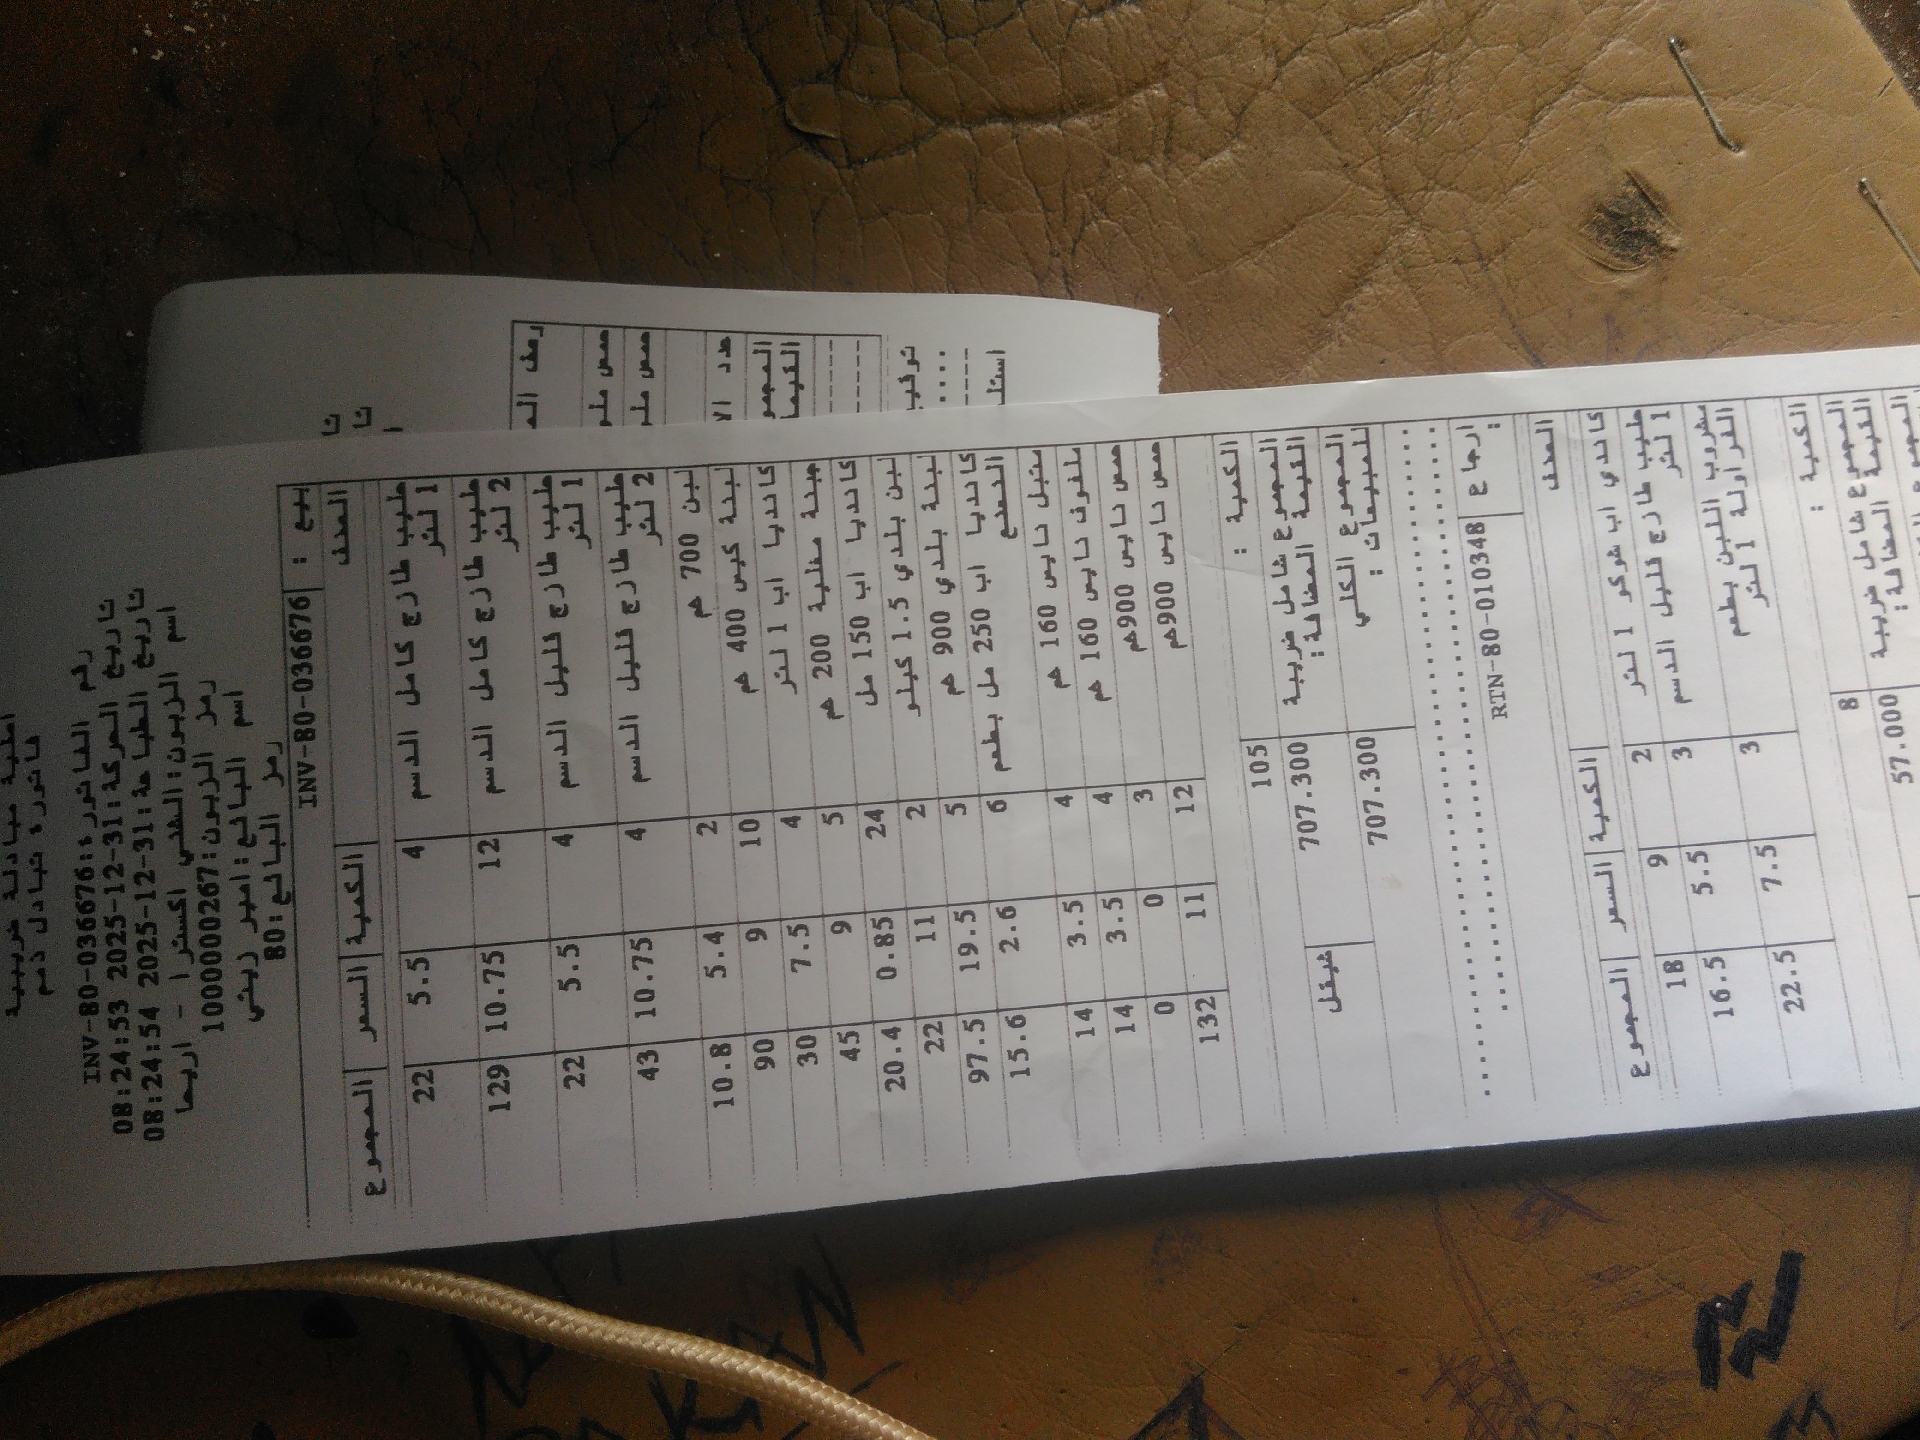 اطلية مبادلة ضريبية
فاتورة تبادل ذمم
رقم الفاتورة:INV-80-036676
تاريخ الحركة:31-12-2025 08:24:53
تاريخ الطباعة:31-12-2025 08:24:54
اسم الزبون: اكسترا - اريحا
رمز الزبون:1000000267
اسم البائع: امير زيتي
رمز البائع:80
بيع : INV-80-036676
الصنف الكمية السعر المجموع
حليب طازج كامل الدسم 1 لتر 4 5.5 22
حليب طازج كامل الدسم 2 لتر 12 10.75 129
حليب طازج قليل الدسم 1 لتر 4 5.5 22
حليب طازج قليل الدسم 2 لتر 4 10.75 43
لبن 700 غم 2 5.4 10.8
لبنة كيس 400 غم 10 9 90
كانديا اب 1 لتر 4 7.5 30
جبنة مغلية 200 غم 5 9 45
كانديا اب 150 مل 24 0.85 20.4
لبن بلدي 1.5 كيلو 2 11 22
لبنة بلدي 900 غم 5 19.5 97.5
كانديا اب 250 مل بطعم 6 2.6 15.6
متبل نايس 160 غم 4 3.5 14
ملفوف نايس 160 غم 4 3.5 14
حمص نايس 900غم 3 0 0
حمص نايس 900غم 12 11 132
الكمية : 105
المجموع شامل ضريبة القيمة المضافة: 707.300
المجموع الكلي للمبيعات : 707.300 شيقل
ارجاع : RTN-80-010348
الصنف الكمية السعر المجموع
كاندي اب شوكو 1 لتر 2 9 18
حليب طازج قليل الدسم 1 لتر 3 5.5 16.5
مشروب اللبن بطعم الفراولة 1 لتر 3 7.5 22.5
الكمية : 8
المجموع شامل ضريبة القيمة المضافة: 57.000